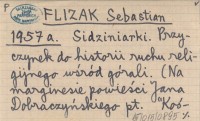 P
FLIZAK Sebastian
1957 a. Sidzinianki. Przy-
czynek do historii ruchu reli-
gijnego wśród górali. (Na
marginesie powieści Jana
Dobraczyńskiego pt. "Koś-